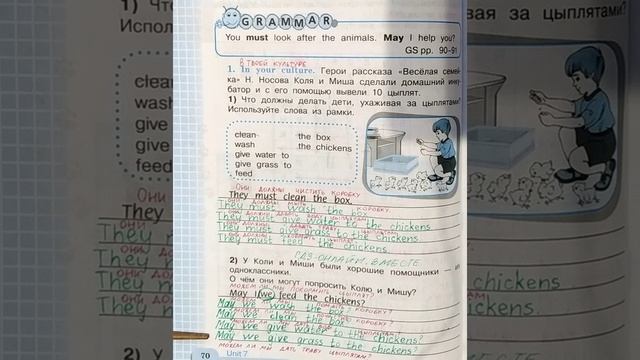 GRAMMAR
You must look after the animals. May I help you?
GS pp. 90-91
В ТВОЕЙ КУЛЬТУРЕ
1. In your culture. Герои рассказа «Весёлая семей-
ка» Н. Носова Коля и Миша сделали домашний инку-
батор и с его помощью вывели 10 цыплят.
1) Что должны делать дети, ухаживая за цыплятами?
Используйте слова из рамки.
clean the box
wash the chickens
give water to
give grass to
feed
ОНИ ДОЛЖНЫ ЧИСТИТЬ КОРОБКУ
They must clean the box.
ОНИ ДОЛЖНЫ МЫТЬ КОРОБКУ.
They must wash the box
They must give water to the chickens
They must give grass to the chickens
They must feed the chickens.
ГДЗ-ОНЛАЙН. ВМЕСТЕ
2) У Коли и Миши были хорошие помощники — их
одноклассники.
О чём они могут попросить Колю и Мишу?
МОЖЕМ ЛИ МЫ ПОКОРМИТЬ ЦЫПЛЯТ?
May I (we) feed the chickens?
May we wash the box?
May we clean the box?
May we give water to the chickens?
May we give grass to the chickens?
70 Unit 7 МОЖЕМ ЛИ МЫ ДАТЬ ТРАВУ ЦЫПЛЯТАМ?